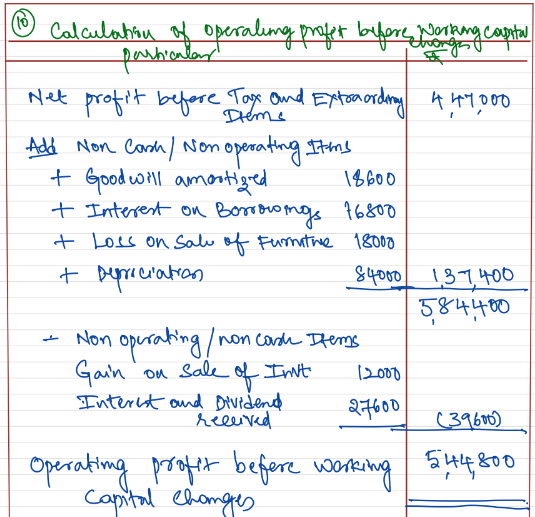 (10) Calculation of operating profit before working capital changes
particular ₹
Net profit before Tax and Extraordinary Items 4,47,000
Add Non Cash / Non operating Items
+ Goodwill amortized 18600
+ Interest on Borrowings 16800
+ Loss on Sale of Furniture 18000
+ Depreciation 84000 1,37,400
5,84,400
- Non operating / non cash Items
Gain on Sale of Invt 12000
Interest and Dividend received 27600 (39600)
Operating profit before working capital changes 5,44,800